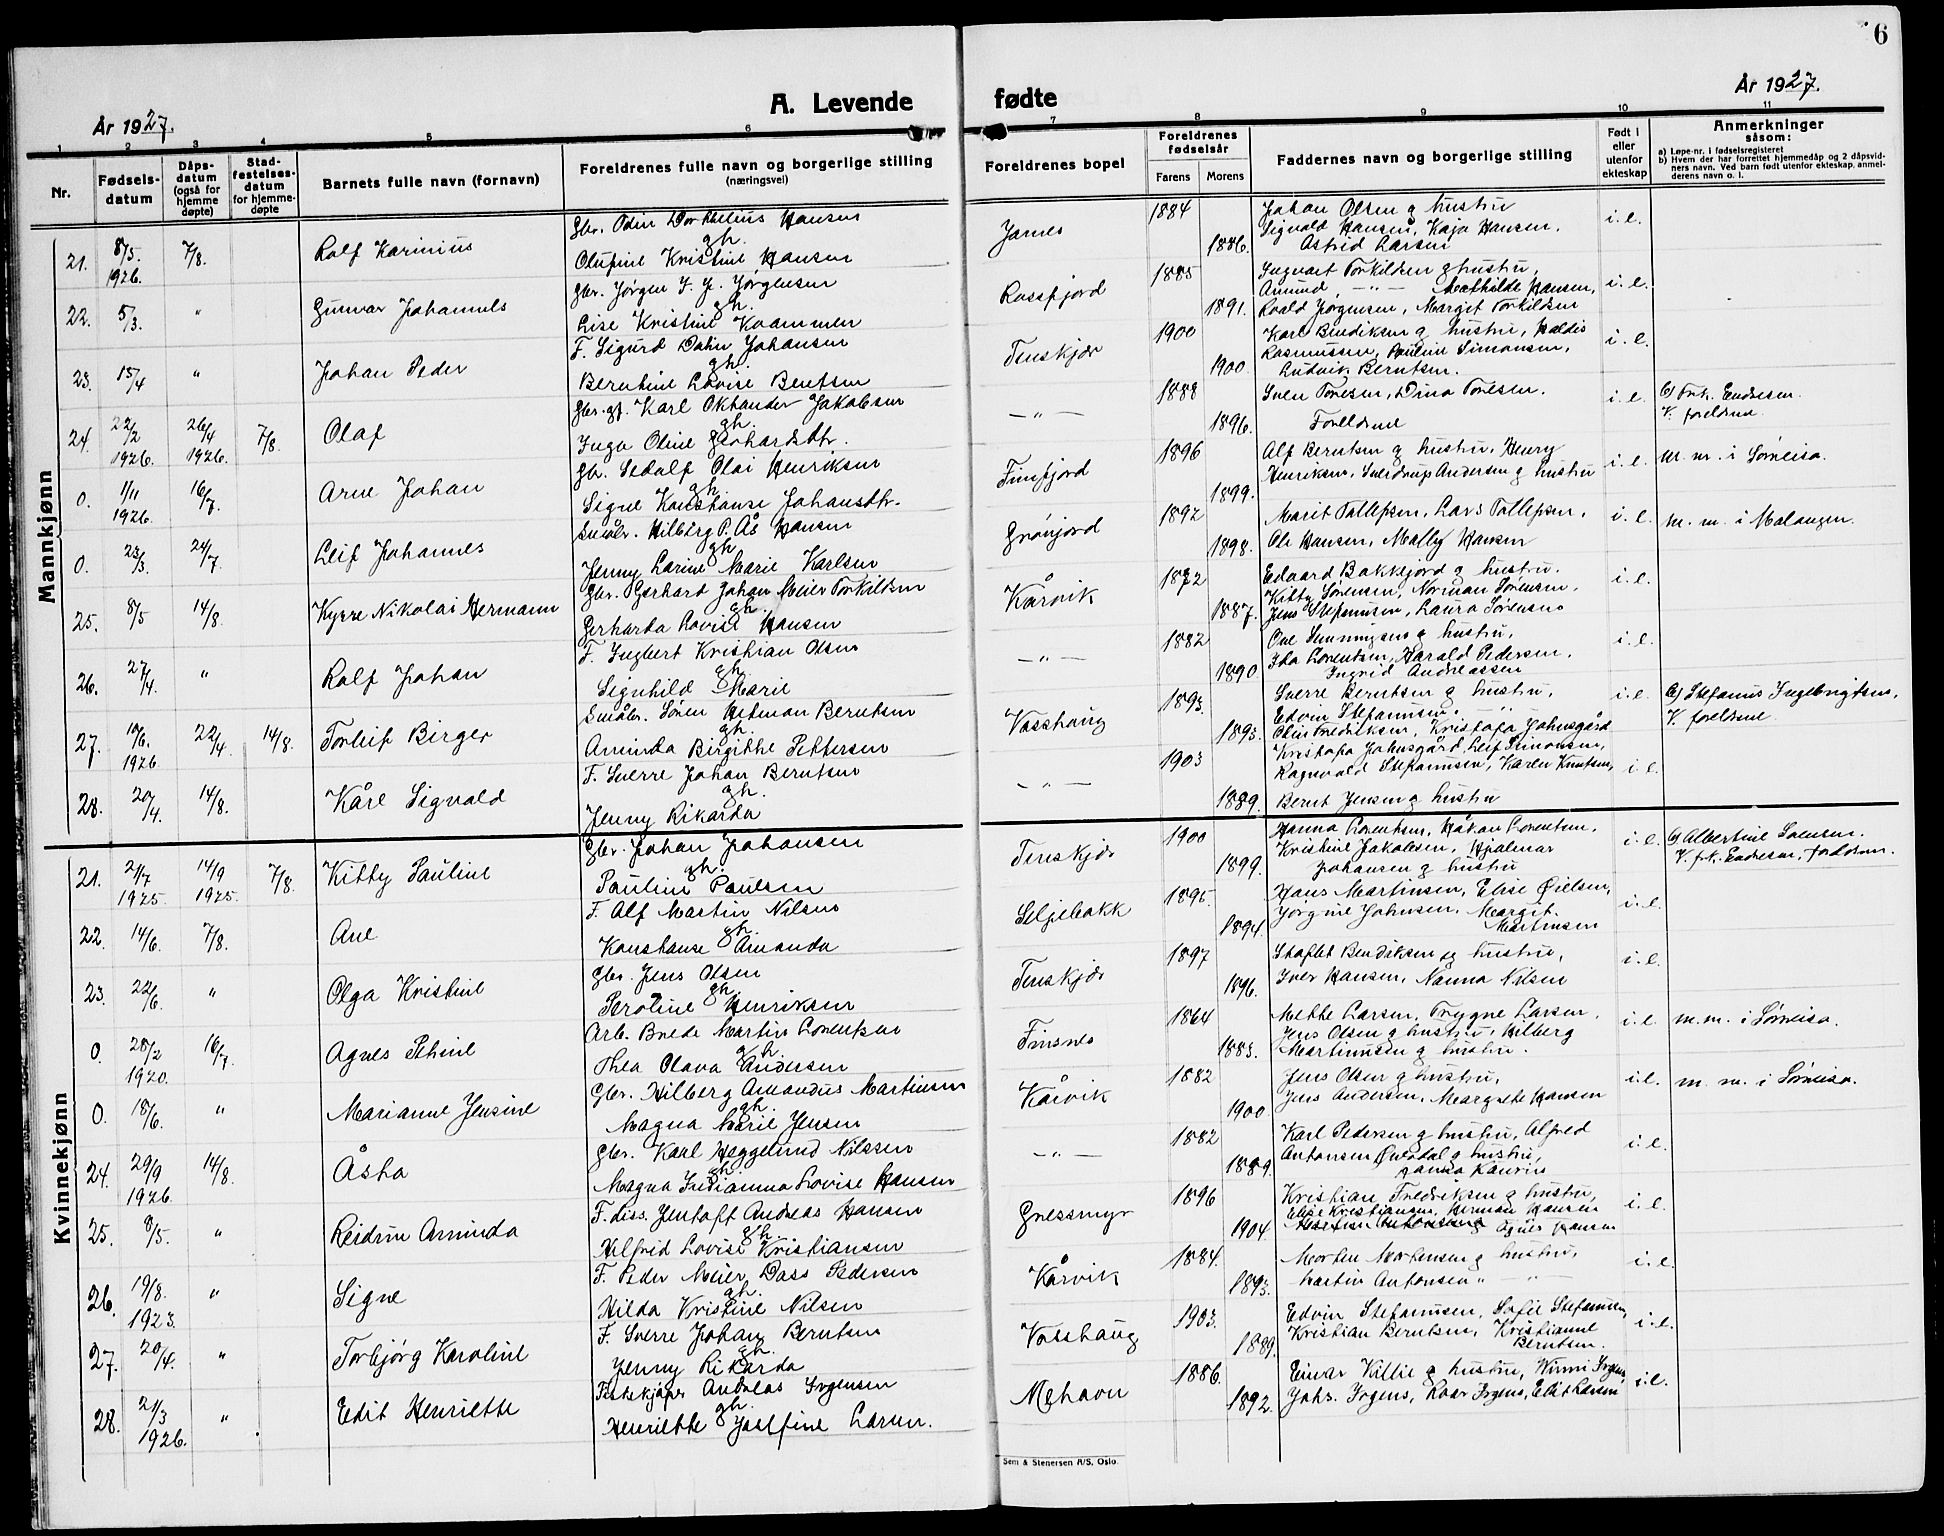 6
År 1927.
A. Levende fødte
År 1927.
1 2 3 4 5 6 7 8 9 10 11
Nr.
Fødsels-datum
Dåps-datum (også for hjemme døpte)
Stad-festelses-datum for hjemme-døpte
Barnets fulle navn (fornavn)
Foreldrenes fulle navn og borgerlige stilling (næringsvei)
Foreldrenes bopel
Foreldrenes fødselsår
Farens Morens
Faddernes navn og borgerlige stilling
Født i eller utenfor ekteskap
Anmerkninger såsom:
a) Løpe-nr. i fødselsregisteret
b) Hvem der har forrettet hjemmedåp og 2 dåpsvidners navn. Ved barn født utenfor ekteskap, anmelderens navn o. l.
Mannkjønn
21. 8/5. 1926. 7/8. Rolf Karinius
Gbr. Odin Hansen
gh.
Olufine Kristine Hansen
Janes 1884 1886.
Johan Olsen g hustru
Sigvald Hansen, Kaja Hansen.
Astrid Larsen
i. e.
22. 5/3. " Gunvar Johannes
Gbr. Jørgen J. P. Jørgensen
gh.
Lise Kristine Kvammen
Rossfjord 1885 1891.
Ingvart Torkildsen g hustru,
Amund —"— Mathilde Hansen,
Roald Jørgensen, Margit Torkildsen
i. e.
23. 15/4 " Johan Peder
F. Sigurd Dahn Johansen
gh.
Berntine Lovise Berntsen
Tenskjær 1900 1900.
Karl Bendiksen g hustru, Haldis
Rasmussen, Pauline Simonsen,
Ludvik Berntsen.
i. e.
24. 22/2 1926. 26/4 1926. 7/8. Olaf
Gbr. gf. Karl Oktander Jakobsen
gh.
Inga Oline Gerhardsdtr.
—"— 1888 1896.
Sven Tonesen, Dina Tonesen.
Foreldrene
i. e.
b) Frk. Endresen.
V. foreldrene
0. 1/11 1926. 16/7. Arne Johan
Gbr. Sedolf Olai Henriksen
gh.
Signe Konstanse Johansdtr.
Finfjord 1896 1899.
Alf Berntsen g hustru, Henry
Henriksen, Sverdrup Andersen g hustru
i. e.
m. m. i Sørreisa.
0. 23/3. 24/7. Leif Johannes
Småbr. Hilberg P. Ås Hansen
gh.
Jenny Larine Marie Karlsen
Grønjord 1892 1898.
Marit Tollefsen, Lars Tollefsen,
Ole Hansen, Mally Hansen
i. e.
m. m. i Malangen.
25. 8/5 14/8. Kyrre Nikolai Hermann
Gbr. Gerhard Johan Meier Torkildsen
gh.
Gerharda Lovise Hansen
Kårvik 1872 1887.
Edvard Bakkejord g hustru.
Kitty Sørensen, Norman Sørensen,
Jens Stefanusen, Laura Sørensen
i. e.
26. 27/4. " Rolf Johan
F. Ingbert Kristian Olsen
gh.
Signhild Marie
—"— 1882 1890
Ove Henningsen g hustru,
Ida Lorentsen, Harald Pedersen,
Ingrid Andreassen
i. e.
27. 10/6. 1926 22/4. 14/8. Torleif Birger
Småbr. Søren Hetman Berntsen
gh.
Aminda Birgitte Pettersen
Vasshaug 1893. 1893.
Sverre Berntsen g hustru,
Edvin Stefanusen, " "
Oline Fredriksen, Kristofa Johnsgård
i. e.
b) Stefanus Ingebrigtsen,
V. foreldrene
28. 20/4. 14/8. Kåre Sigvald
F. Sverre Johan Berntsen
gh.
Jenny Rikarda
—"— 1903 1889.
Kristofa Johnsgård, Leif Simonsen,
Ragnvald Stefanusen, Karen Knutsen,
Bernt Jensen g hustru
i. e.
Kvinnekjønn
21. 21/7 1925 14/9 1925. 7/8. Kitty Pauline
Gbr. Johan Johansen
gh.
Pauline Paulsen
Tenskjær 1900 1899.
Hanna Lorentsen, Håkon Lorentsen.
Kristine Jakobsen, Hjalmar
Johansen g hustru
i. e.
b) Albertine Larsen.
V. frk. Endresen, foreldrene.
22. 14/6. 7/8. Ane
F. Alf Martin Nilsen
gh.
Konstanse Amanda
Seljebakk 1895. 1894.
Hans Martinsen, Elise Øielsen,
Jørgine Johnsen, Margit
Martinsen
i. e.
23. 22/6. " Olga Kristine
Gbr. Jens Olsen
gh.
Peroline Henriksen
Tenskjær 1897 1896.
Stoflet Bendiksen og hustru,
Iver Hansen, Nanna Nilsen
i. e.
0. 28/2 1920. 16/7. Agnes Petrine
Arb. Brede Martin Lorentsen
gh.
Thea Olava Andersen
Finsnes 1864 1883.
Mette Larsen, Trygve Larsen,
Jens Olsen g hustru, Hilberg
Martinussen g hustru.
i. e.
m. m. i Sørreisa.
0. 18/6. " Marianne Jensine
Gbr. Hilberg Amandus Martinsen
gh.
Magna Marie Jensen
Kårvik 1882 1900
Jens Olsen g hustru,
Jens Andersen, Margrete Hansen
i. e.
m. m. i Sørreisa.
24. 29/9 1926. 14/8. Åsta
Gbr. Karl Heggelund Nilssen
gh.
Magna Indianna Lovise Hansen
—"— 1882 1889.
Karl Pedersen g hustru, Alfred
Antonsen Øverdal g hustru,
Janna Kaurin
i. e.
25. 8/5. " Reidun Aminda
F. diss. Jentoft Andreas Hansen
gh.
Hilfrid Lovise Kristiansen
Gressmyr 1896 1904.
Kristian Fredriksen g hustru,
Elise Kristiansen, Herman Hansen
Agnes Hansen
i. e.
26. 19/8. 1923. " Signe
F. Peder Meier Dass Pedersen
gh.
Hilda Kristine Nilsen
Kårvik 1884. 1893.
Morten Mortensen g hustru,
Martin Antonsen " " —
i. e.
27. 20/4. " Torbjørg Karoline
F. Sverre Johan Berntsen
gh.
Jenny Rikarda
Vasshaug 1903. 1889.
Edvin Stefanusen, Sofie Stefanusen,
Kristian Berntsen, Kristianne
Berntsen.
i. e.
28. 21/3 1926. " Edit Henriette
Fiskekjøper Andreas Irgensen
gh.
Henriette Josefine Larsen.
Mehavn 1886. 1892.
Einar Killie g hustru, Winni Irgens
Johs. Irgens, Roar Irgens, Edit Larsen
i. e.
Sem & Stenersen A/S, Oslo.